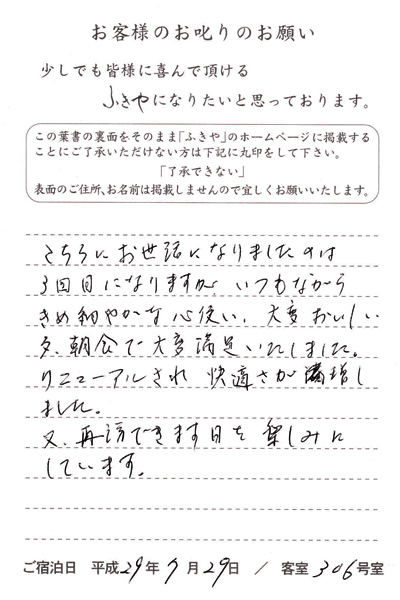 お客様のお叱りのお願い
少しでも皆様に喜んで頂ける
ふきやになりたいと思っております。
この葉書の裏面をそのまま「ふきや」のホームページに掲載する
ことにご了承いただけない方は下記に丸印をして下さい。
「了承できない」
表面のご住所、お名前は掲載しませんので宜しくお願いいたします。
こちらにお世話になりましたのは
3回目になりますが いつもながら
きめ細やかな心使い、大変おいしい
夕、朝食で大変満足いたしました。
リニューアルされ 快適さが増し
ました。
又、再訪できます日を楽しみに
しています。
ご宿泊日 平成29年7月29日 / 客室306号室